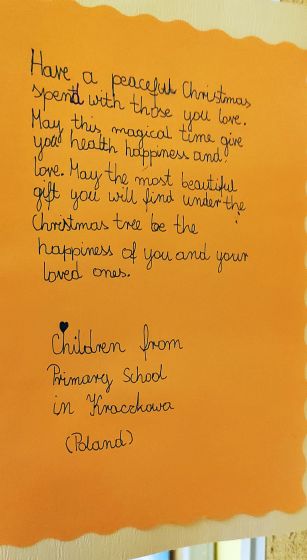 Have a peaceful Christmas
spend with those you love.
May this magical time give
you health happiness and
love. May the most beautiful
gift you will find under the
Christmas tree be the
happiness of you and your
loved ones.
Children from
Primary School
in Kraczkowa
(Poland)